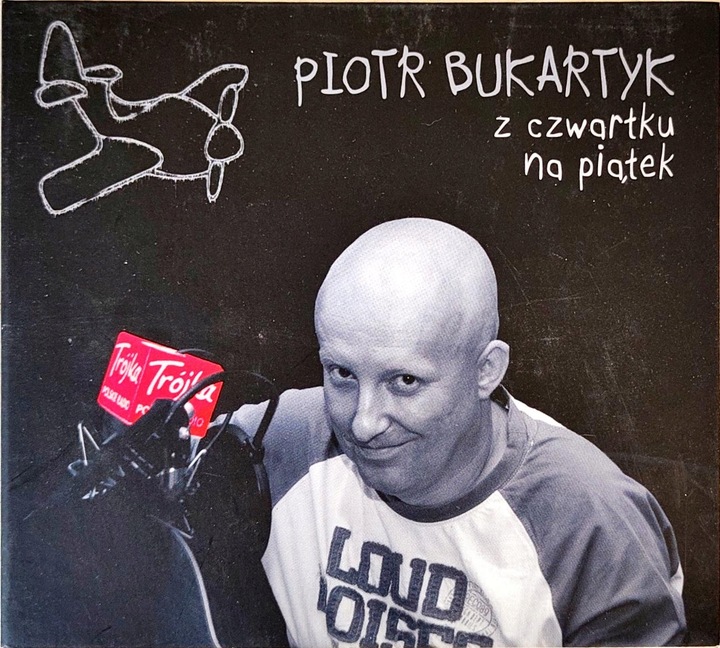 PIOTR BUKARTYK
z czwartku
na piątek
Trójka Trójka
POLSKIE RADIO
LOUD
NOISES